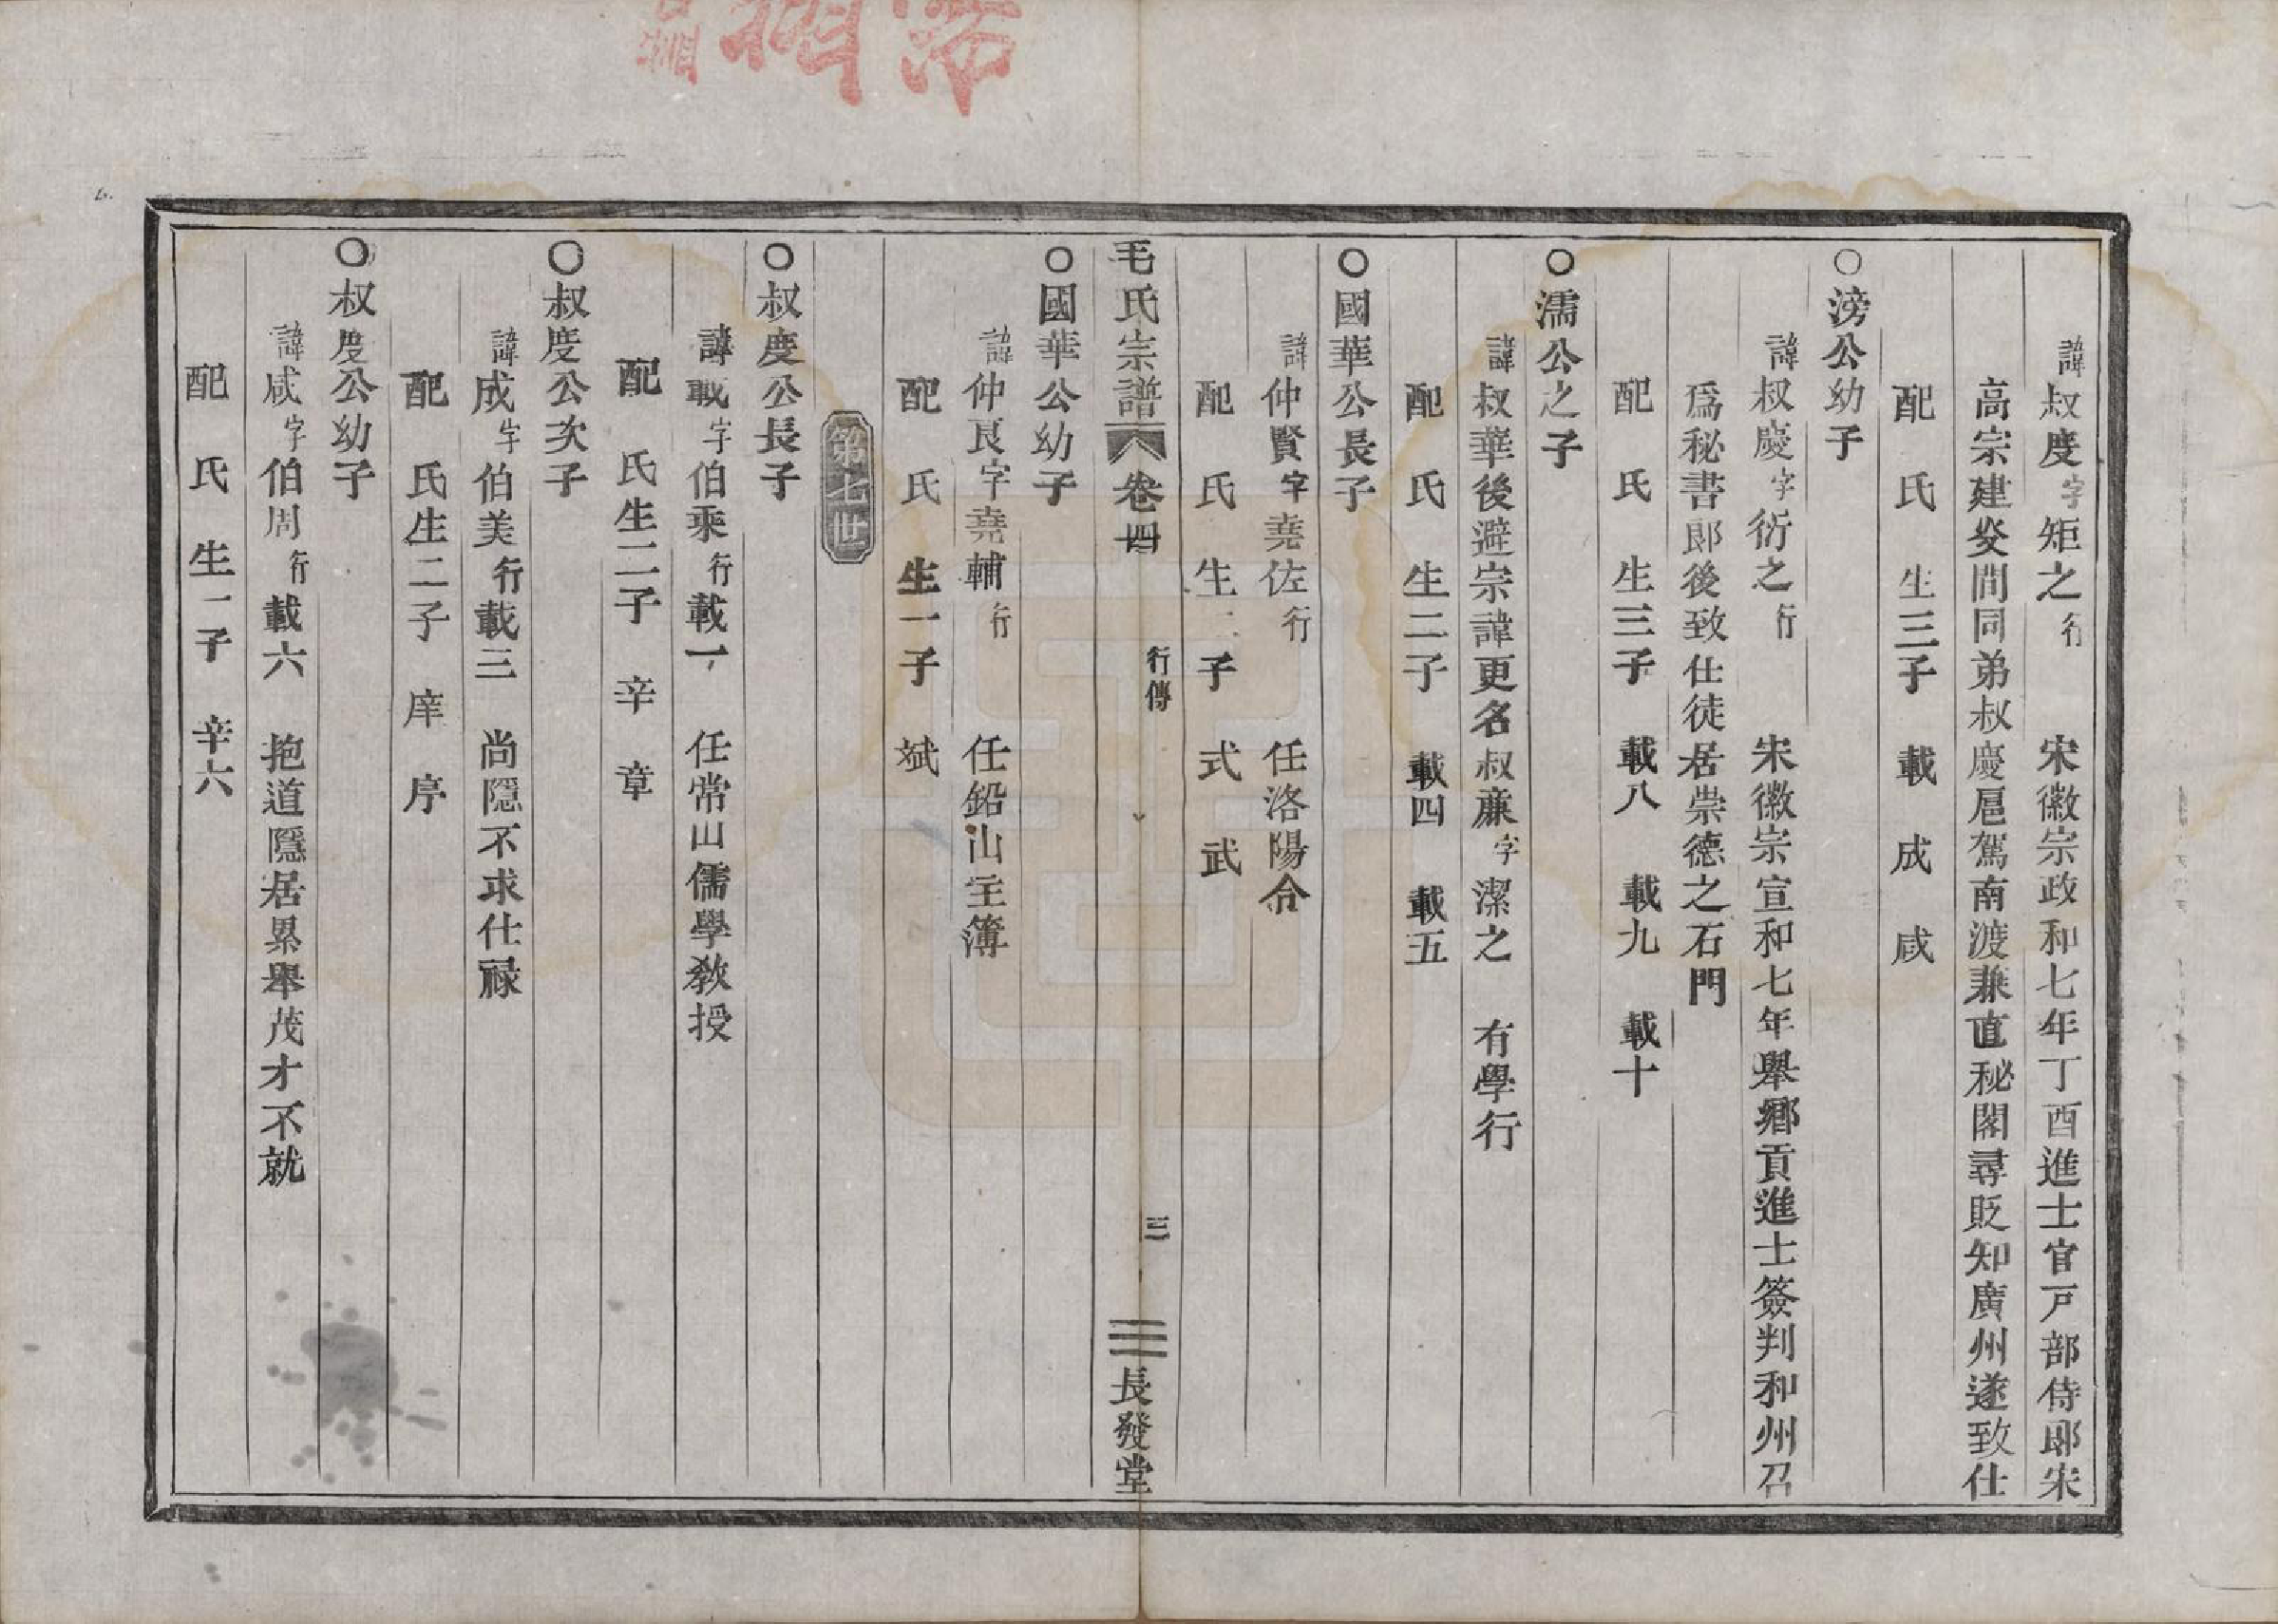 諱叔度字矩之行 宋徽宗政和七年丁酉進士官戸部侍郎宋
高宗建炎間同弟叔慶扈駕南渡兼直秘閣尋貶知廣州遂致仕
配 氏 生三子 載 成 咸
○滂公幼子
諱叔慶字衍之行 宋徽宗宣和七年舉鄉貢進士簽判和州召
爲秘書郎後致仕徒居崇德之石門
配 氏 生三子 載八 載九 載十
○濡公之子
諱叔華後避宗諱更名叔亷字潔之 有學行
配 氏 生二子 載四 載五
○國華公長子
諱仲賢字堯佐行 任洛陽令
配 氏 生二子 式 武
毛氏宗譜 卷四 行傳 三 長發堂
○國華公幼子
諱仲良字堯輔行 任鉛山主簿
配 氏 生一子 斌
第七世
○叔度公長子
諱載字伯乘行載一 任常山儒學敎授
配 氏生二子 辛 章
○叔度公次子
諱成字伯美行載三 尚隱不求仕祿
配 氏生二子 庠 序
○叔度公幼子
諱咸字伯周行載六 抱道隱居累舉茂才不就
配 氏 生一子 辛六